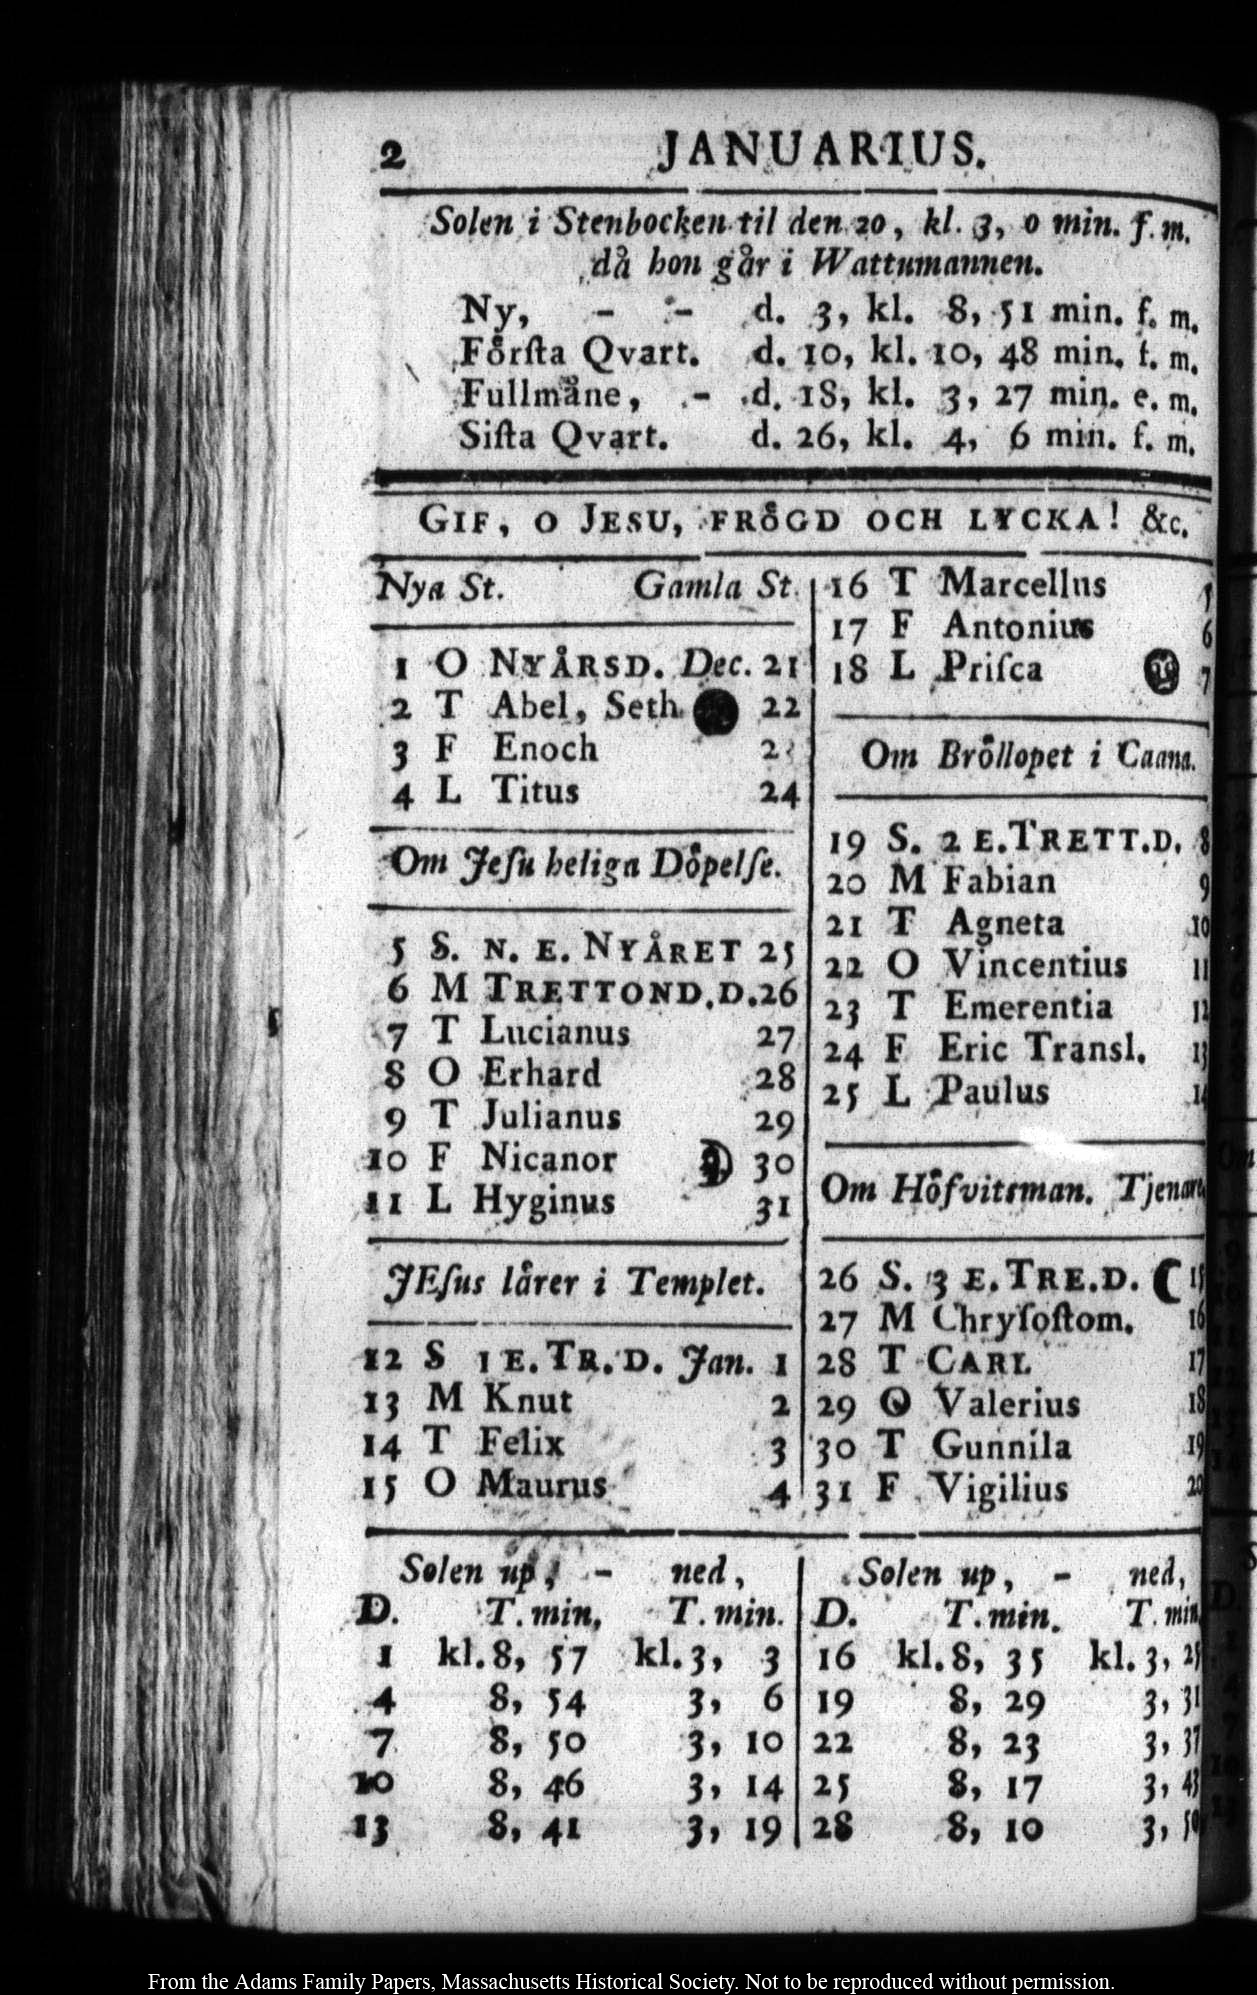 2 JANUARIUS.
Solen i Stenbocken til den 20, kl. 3, 0 min. f. m.
då hon går i Wattumannen.
Ny, - - d. 3, kl. 8, 51 min. f. m.
Förſta Qvart. d. 10, kl. 10, 48 min. f. m.
Fullmåne, - d. 18, kl. 3, 27 min. e. m.
Siſta Qvart. d. 26, kl. 4, 6 min. f. m.
GIF, O JESU, FRÖGD OCH LYCKA! &c.
Nya St. Gamla St.
1 O NYÅRSD. Dec. 21
2 T Abel, Seth 22
3 F Enoch 23
4 L Titus 24
Om Jeſu heliga Döpelſe.
5 S. N. E. NYÅRET 25
6 M TRETTOND.D. 26
7 T Lucianus 27
8 O Erhard 28
9 T Julianus 29
10 F Nicanor 30
11 L Hyginus 31
JEſus lårer i Templet.
12 S 1 E. TR. D. Jan. 1
13 M Knut 2
14 T Felix 3
15 O Maurus 4
16 T Marcellus 5
17 F Antonius 6
18 L Priſca 7
Om Bröllopet i Caana.
19 S. 2 E. TRETT.D. 8
20 M Fabian 9
21 T Agneta 10
22 O Vincentius 11
23 T Emerentia 12
24 F Eric Transl. 13
25 L Paulus 14
Om Höfvitsman. Tjenare
26 S. 3 E. TRE.D. 15
27 M Chryſoſtom. 16
28 T CARL 17
29 O Valerius 18
30 T Gunnila 19
31 F Vigilius 20
Solen up, - ned,
D. T. min. T. min.
1 kl. 8, 57 kl. 3, 3
4 8, 54 3, 6
7 8, 50 3, 10
10 8, 46 3, 14
13 8, 41 3, 19
Solen up, - ned,
D. T. min. T. min.
16 kl. 8, 35 kl. 3, 25
19 8, 29 3, 31
22 8, 23 3, 37
25 8, 17 3, 43
28 8, 10 3, 50
From the Adams Family Papers, Massachusetts Historical Society. Not to be reproduced without permission.